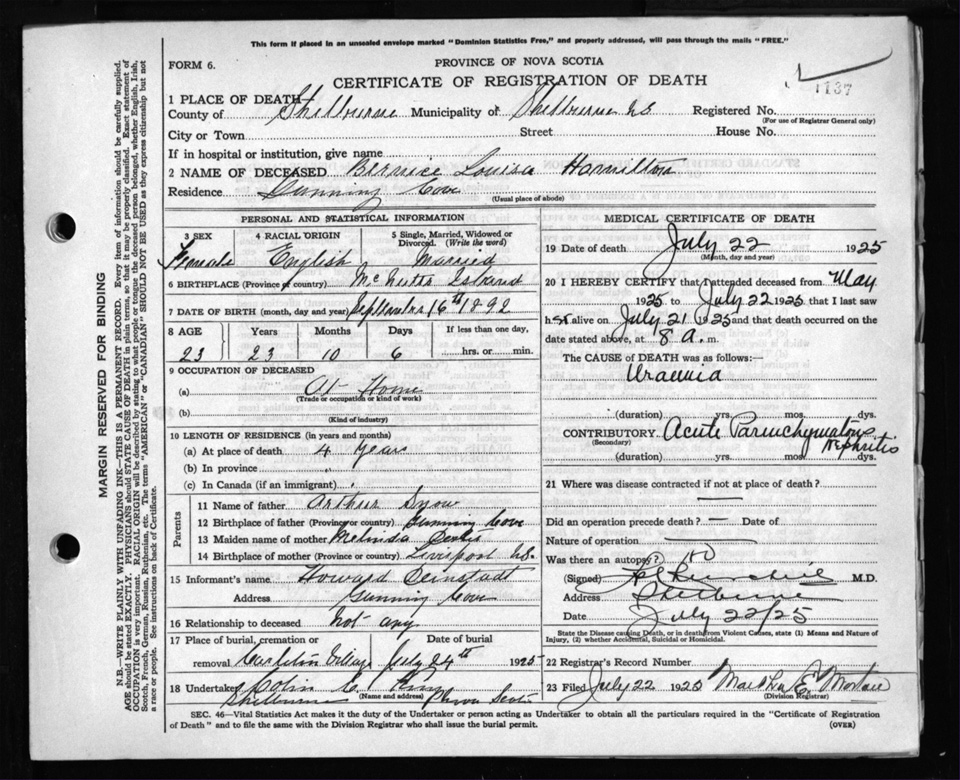 This form if placed in an unsealed envelope marked "Dominion Statistics Free," and properly addressed, will pass through the mails "FREE."
FORM 6.
PROVINCE OF NOVA SCOTIA
CERTIFICATE OF REGISTRATION OF DEATH
1137
1 PLACE OF DEATH—
County of Shelburne Municipality of Shelburne NS Registered No.
(For use of Registrar General only)
City or Town Street House No.
If in hospital or institution, give name
2 NAME OF DECEASED Bernice Louisa Hamilton
Residence Gunning Cove
(Usual place of abode)
PERSONAL AND STATISTICAL INFORMATION
3 SEX 4 RACIAL ORIGIN 5 Single, Married, Widowed or Divorced. (Write the word)
Female English Married
6 BIRTHPLACE (Province or country) McNutts Island
7 DATE OF BIRTH (month, day and year) September 16th 1892
8 AGE Years Months Days If less than one day,
23 23 10 6 ....hrs. or ....min.
9 OCCUPATION OF DECEASED
(a) At Home
(Trade or occupation or kind of work)
(b)
(Kind of industry)
10 LENGTH OF RESIDENCE (in years and months)
(a) At place of death 4 years
(b) In province
(c) In Canada (if an immigrant)
Parents
11 Name of father Arthur Snow
12 Birthplace of father (Province or country) Gunning Cove
13 Maiden name of mother Melinda
14 Birthplace of mother (Province or country) Liverpool NS.
15 Informant's name Howard
Address Gunning Cove
16 Relationship to deceased Not any
17 Place of burial, cremation or removal Carleton Village Date of burial July 24th 1925
18 Undertaker Colin C.
(Name and address)
Shelburne Nova Scotia
MEDICAL CERTIFICATE OF DEATH
19 Date of death July 22 1925
(Month, day and year)
20 I HEREBY CERTIFY that I attended deceased from May
1925 to July 22 1925 that I last saw
h er alive on July 21 1925 and that death occurred on the
date stated above, at 8 a. m.
The CAUSE OF DEATH was as follows:
Uraemia
(duration) yrs. mos. dys.
CONTRIBUTORY Acute Parenchymatous Nephritis
(Secondary)
(duration) yrs. mos. dys.
21 Where was disease contracted if not at place of death?
—
Did an operation precede death? — Date of
Nature of operation —
Was there an autopsy? no
(Signed) M.D.
Address Shelburne
Date July 22/25
State the Disease causing Death, or in death from Violent Causes, state (1) Means and Nature of
Injury, (2) whether Accidental, Suicidal or Homicidal.
22 Registrar's Record Number
23 Filed July 22 1925 Martha E.
(Division Registrar)
SEC. 46—Vital Statistics Act makes it the duty of the Undertaker or person acting as Undertaker to obtain all the particulars required in the "Certificate of Registration
of Death" and to file the same with the Division Registrar who shall issue the burial permit. (OVER)
MARGIN RESERVED FOR BINDING
N.B.—WRITE PLAINLY WITH UNFADING INK—THIS IS A PERMANENT RECORD. Every item of information should be carefully supplied.
AGE should be stated EXACTLY. PHYSICIANS should STATE CAUSE OF DEATH in plain terms, so that it may be properly classified. Exact statement of
OCCUPATION is very important. RACIAL ORIGIN will be described by stating to what people or tongue the deceased person belonged, whether English, Irish,
Scotch, French, German, Russian, Ruthenian, etc. The terms "AMERICAN" or "CANADIAN" SHOULD NOT BE USED as they express citizenship but not
a race or people. See instructions on back of Certificate.